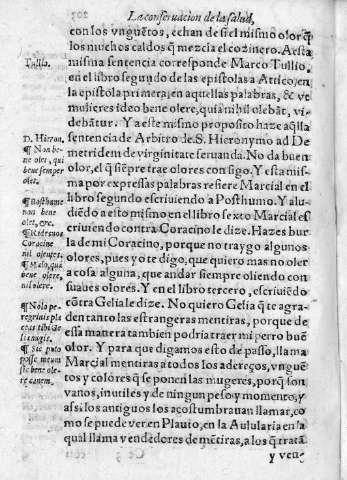 La conseruacion de la salud,
con los vnguẽtos, echan de si el mismo olor q̃
los muchos caldos q̃ mezcla el cozinero. A esta
misma sentencia corresponde Marco Tullio,
en el libro segundo de las epistolas a Attico, en
la epistola primera, en aquellas palabras, & vt
mulieres ideo bene olere, quia nihil olebãt, vi-
debãtur. Y a este mismo proposito haze aq̃lla
sentencia de Arbitro de. S. Hieronymo ad De
metridem de virginitate seruanda. No da buen
olor, el q̃ siẽpre trae olores con sigo. Y esta mis-
ma por expressas palabras refiere Marcial en el
libro segundo escriuiendo a Posthumo. Y alu-
diẽdo a esto mismo en el libro sexto Marcial es
criuiendo contra Coracino le dize. Hazes bur
la de mi Coracino, porque no traygo algunos
olores, pues yo te digo, que quiero mas no oler
a cosa alguna, que andar siempre oliendo con
suaues olores. Y en el libro tercero, escriuiẽdo
cõtra Gelia le dize. No quiero Gelia q̃ te agra-
den tanto las estrangeras mentiras, porque de
essa manera tambien podria traer mi perro buẽ
olor. Y para que digamos esto de passo, llama
Marcial mentiras a todos los adereços, vnguẽ
tos y colores q̃ se ponen las mugeres, porq̃ son
vanos, inutiles y de ningun peso y momento, y
assi los antiguos los acostumbrauan llamar, co
mo se puede ver en Plauto, en la Aulularia en la
qual llama vendedores de mẽtiras, a los q̃ tratã
y ven-
Tullio.
D. Hieron.
¶ Non be
ne olet, qui
bene semper
olet.
¶ Posthume
non bene
olet, &c.
¶ Rides nos
Coracine
nil olentes.
¶ Malo, quã
bene olere,
nil olere.
¶ Nolo pe-
regrinis pla
ceas tibi Ge
lia nugis.
¶ Sic puto
posse meum
sic bene ole-
re canem.